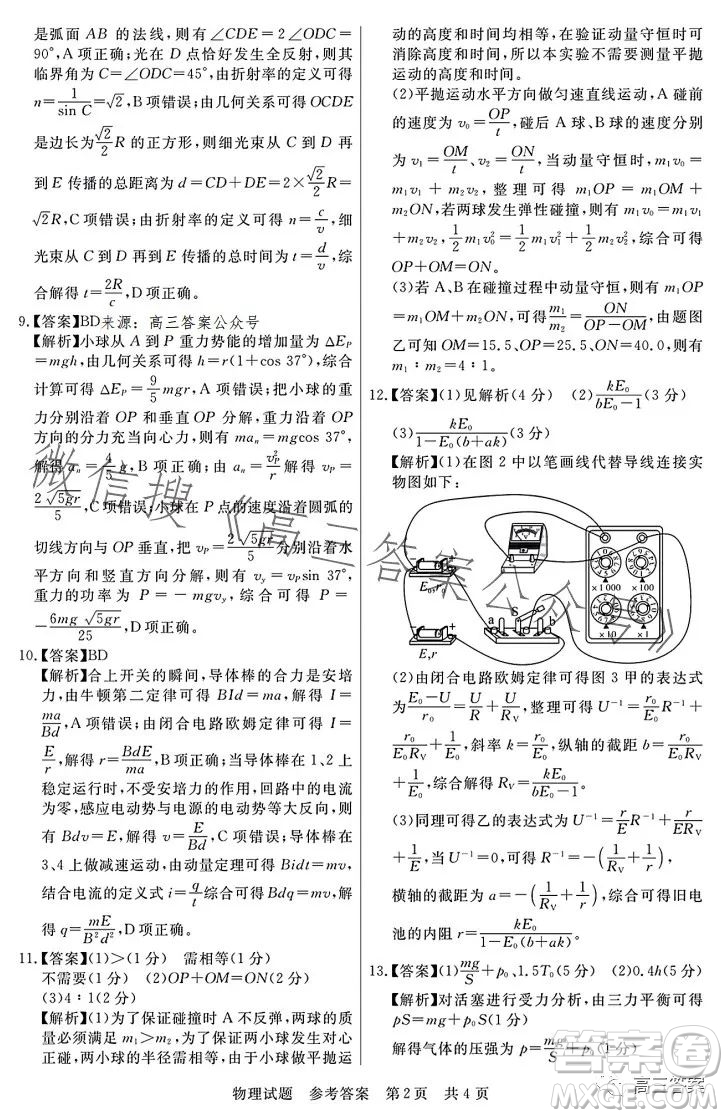 是弧面 AB 的法线,则有∠CDE=2∠ODC=
90°,A项正确;光在D点恰好发生全反射,则其
临界角为C=∠ODC=45°,由折射率的定义可得
n=1/sin C=√2,B项错误;由几何关系可得OCDE
是边长为√2/2 R的正方形,则细光束从C到D再
到E传播的总距离为d=CD+DE=2×√2/2 R=
√2R,C项错误;由折射率的定义可得n=c/v,细
光束从C到D再到E传播的总时间为t=d/v,综
合解得t=2R/c,D项正确。
9.【答案】BD来源:高三答案公众号
【解析】小球从A到P重力势能的增加量为ΔE_P=
mgh,由几何关系可得h=r(1+cos 37°),综合
计算可得ΔE_P=9/5 mgr,A项错误;把小球的重
力分别沿着OP和垂直OP分解,重力沿着OP
方向的分力充当向心力,则有ma_n=mgcos 37°,
解得a_n=4/5 g,B项正确;由a_n=v_P²/r解得v_P=
2√5gr/5,C项错误;小球在P点的速度沿着圆弧的
切线方向与OP垂直,把v_P=2√5gr/5分别沿着水
平方向和竖直方向分解,则有v_y=v_P sin 37°,
重力的功率为P=-mgv_y,综合可得P=
-6mg√5gr/25,D项正确。
10.【答案】BD
【解析】合上开关的瞬间,导体棒的合力是安培
力,由牛顿第二定律可得BId=ma,解得I=
ma/Bd,A项错误;由闭合电路欧姆定律可得I=
E/r,解得r=BdE/ma,B项正确;当导体棒在1、2上
稳定运行时,不受安培力的作用,回路中的电流
为零,感应电动势与电源的电动势等大反向,则
有Bdv=E,解得v=E/Bd,C项错误;导体棒在
3、4上做减速运动,由动量定理可得Bidt=mv,
结合电流的定义式i=q/t综合可得Bdq=mv,解
得q=mE/B²d²,D项正确。
11.【答案】(1)>(1分) 需相等(1分)
不需要(1分) (2)OP+OM=ON(2分)
(3)4∶1(2分)
【解析】(1)为了保证碰撞时A不反弹,两球的质
量必须满足m₁>m₂,为了保证两小球发生对心
正碰,两小球的半径需相等,由于小球做平抛运
动的高度和时间均相等,在验证动量守恒时可
消除高度和时间,所以本实验不需要测量平抛
运动的高度和时间。
(2)平抛运动水平方向做匀速直线运动,A碰前
的速度为v₀=OP/t,碰后A球、B球的速度分别
为v₁=OM/t、v₂=ON/t,当动量守恒时,m₁v₀=
m₁v₁+m₂v₂,整理可得m₁OP=m₁OM+
m₂ON;若两球发生弹性碰撞,则有m₁v₀=m₁v₁
+m₂v₂,1/2 m₁v₀²=1/2 m₁v₁²+1/2 m₂v₂²,综合可得
OP+OM=ON。
(3)若A、B在碰撞过程中动量守恒,则有m₁OP
=m₁OM+m₂ON,综合可得m₁/m₂=ON/(OP-OM),由题图
乙可知OM=15.5、OP=25.5、ON=40.0,则有
m₁∶m₂=4∶1。
12.【答案】(1)见解析(4分) (2)kE₀/(bE₀-1)(3分)
(3)kE₀/(1-E₀(b+ak))(3分)
【解析】(1)在图2中以笔画线代替导线连接实
物图如下:
E₀,r₀
E,r
S
a
b
×1 000
×100
×10
×1
(2)由闭合电路欧姆定律可得图3甲的表达式
为(E₀-U)/r₀=U/R+U/R_V,整理可得U⁻¹=r₀/E₀ R⁻¹+
r₀/(E₀R_V)+1/E₀,斜率k=r₀/E₀,纵轴的截距b=r₀/(E₀R_V)
+1/E₀,综合解得R_V=kE₀/(bE₀-1)。
(3)同理可得乙的表达式为U⁻¹=r/E R⁻¹+r/(ER_V)
+1/E,当U⁻¹=0,可得R⁻¹=-(1/R_V+1/r),
横轴的截距为a=-(1/R_V+1/r),综合可得旧电
池的内阻r=kE₀/(1-E₀(b+ak))。
13.【答案】(1)mg/S+p₀、1.5T₀(5分) (2)0.4h(5分)
【解析】对活塞进行受力分析,由三力平衡可得
pS=mg+p₀S(1分)
解得气体的压强为p=mg/S+p₀(1分)
物理试题 参考答案 第2页 共4页
微信搜《高三答案公众号》
高三答案